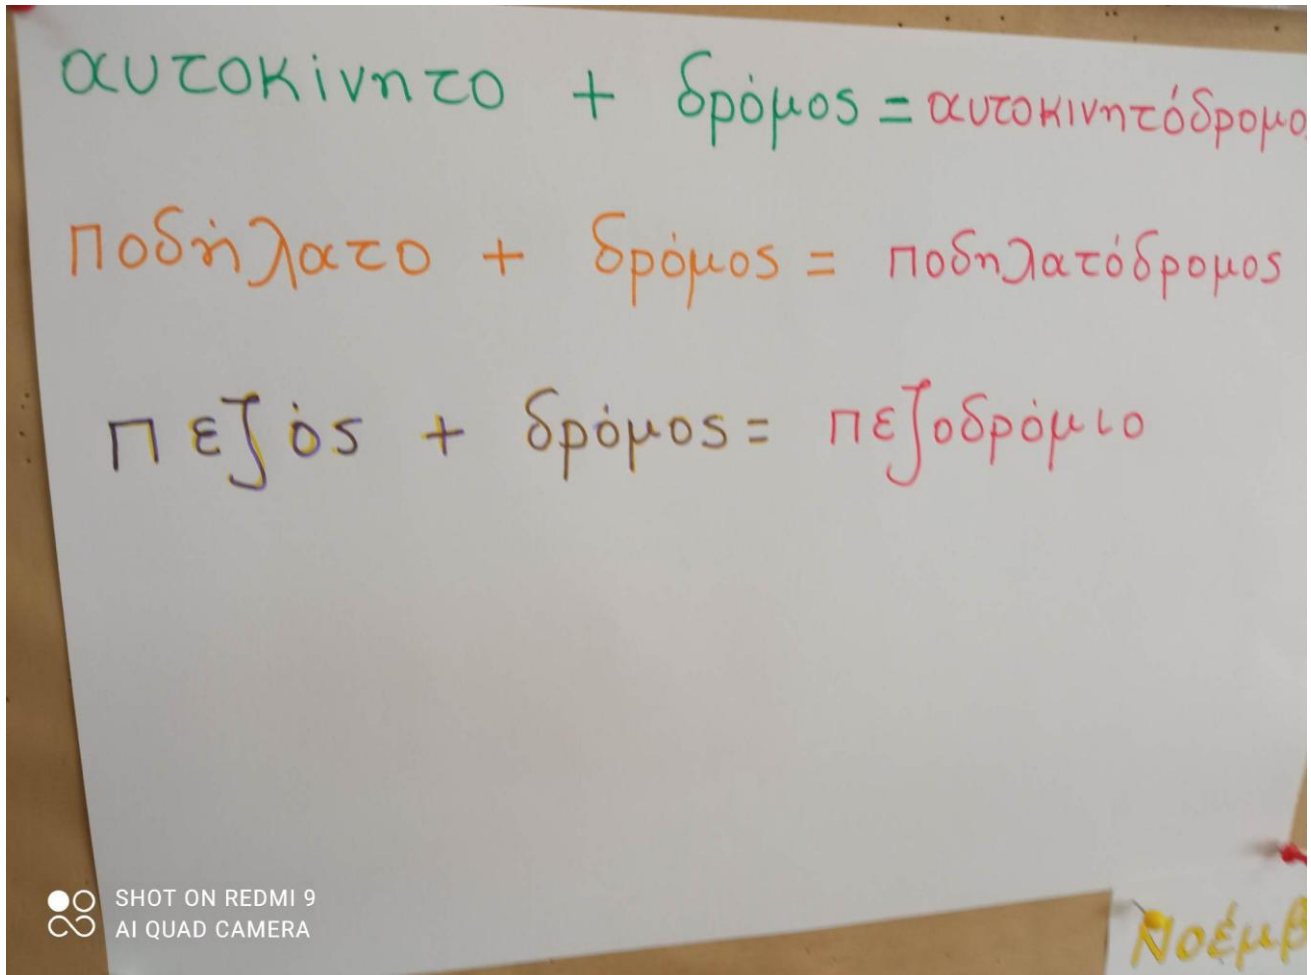 αυτοκίνητο + δρόμος = αυτοκινητόδρομο
ποδήλατο + δρόμος = ποδηλατόδρομος
πεζός + δρόμος = πεζοδρόμιο
SHOT ON REDMI 9
AI QUAD CAMERA
Νοέμβ